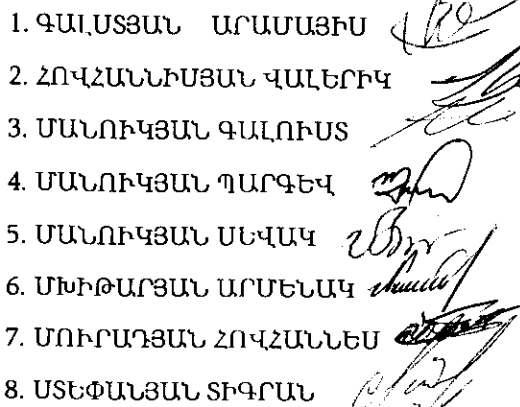 1. ԳԱԼՍՏՅԱՆ ԱՐԱՄԱՅԻՍ
2. ՀՈՎՀԱՆՆԻՍՅԱՆ ՎԱԼԵՐԻԿ
3. ՄԱՆՈՒԿՅԱՆ ԳԱԼՈՒՍՏ
4. ՄԱՆՈՒԿՅԱՆ ՊԱՐԳԵՎ
5. ՄԱՆՈՒԿՅԱՆ ՍԵՎԱԿ
6. ՄԽԻԹԱՐՅԱՆ ԱՐՄԵՆԱԿ
7. ՄՈՒՐԱԴՅԱՆ ՀՈՎՀԱՆՆԵՍ
8. ՍՏԵՓԱՆՅԱՆ ՏԻԳՐԱՆ